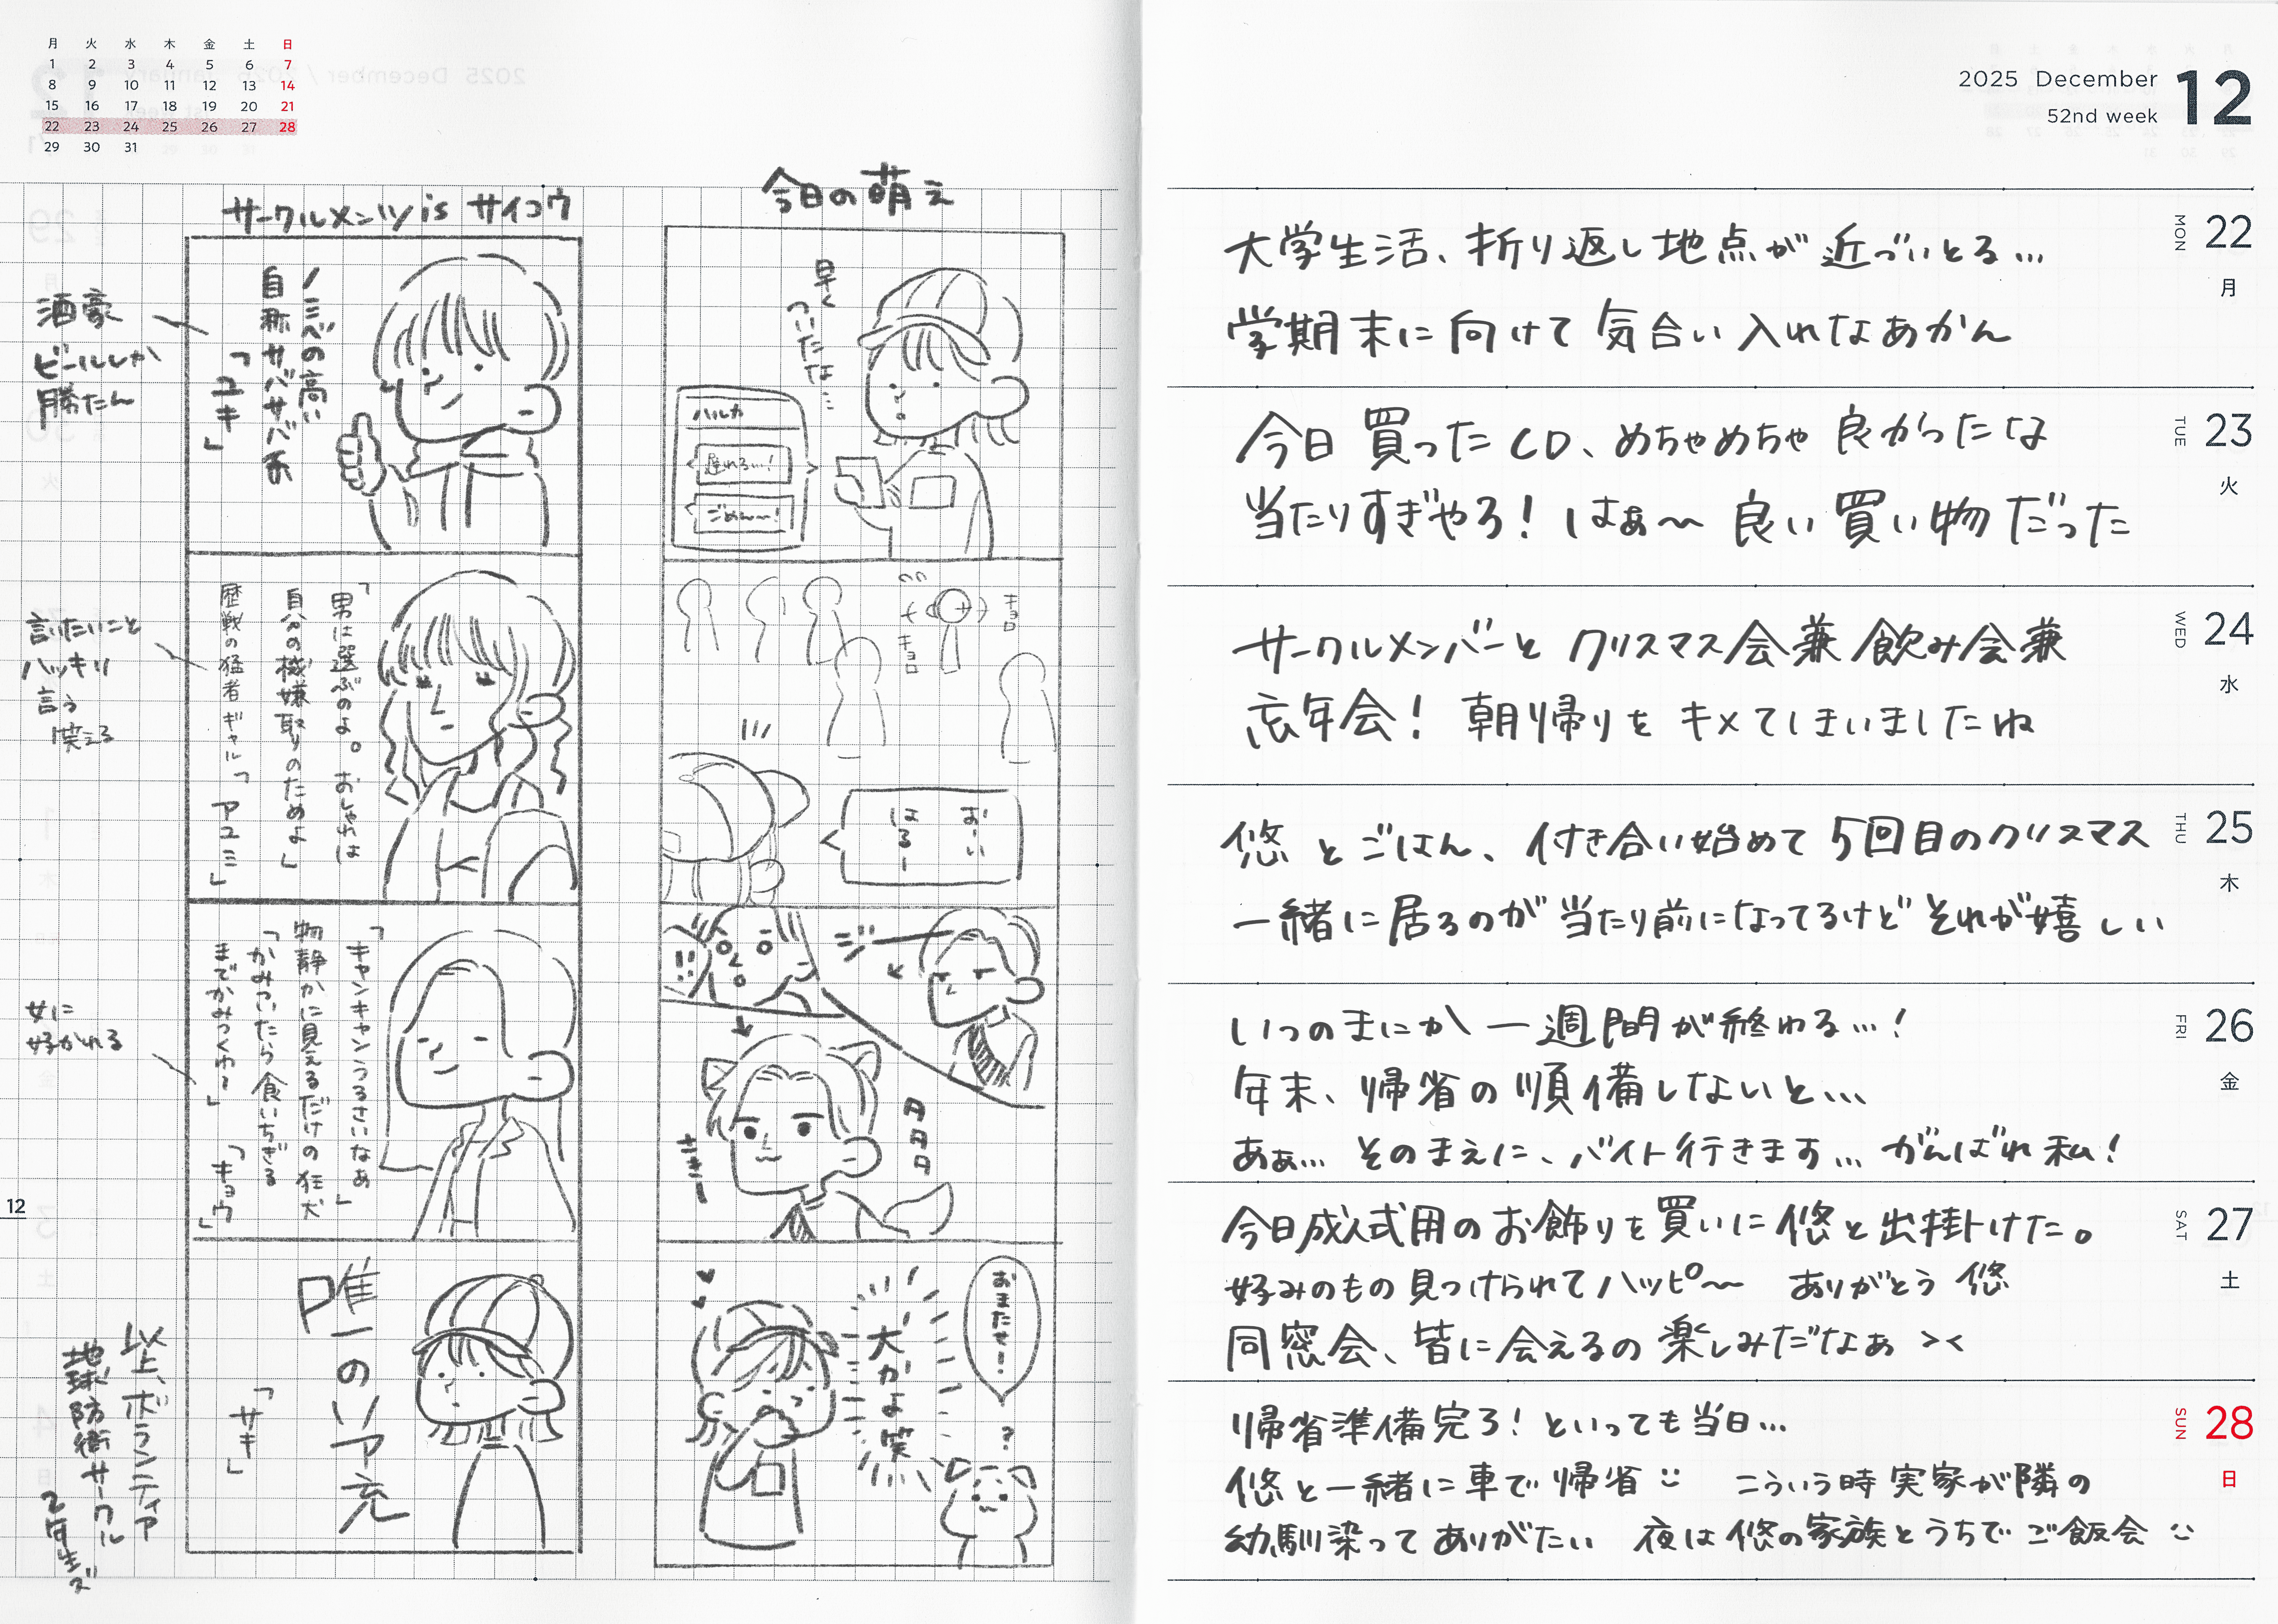 月 火 水 木 金 土 日
1 2 3 4 5 6 7
8 9 10 11 12 13 14
15 16 17 18 19 20 21
22 23 24 25 26 27 28
29 30 31
サークルメンツ is サイコウ
酒豪
ビールしか
勝たん
ノミベの高い
自称サバサバ系
「ユキ」
言いたいこと
ハッキリ
言う
笑える
「男は選ぶのよ。おしゃれは
自分の機嫌取りのためよ」
歴戦の猛者ギャル「アユミ」
女に
好かれる
「キャンキャンうるさいなあ」
物静かに見えるだけの狂犬
「かみついたら食いちぎる
までかみつくわ」「キョウ」
唯一のリア充
「サキ」
以上、ボランティア
地球防衛サークル
2年生ズ
12
今日の萌え
早く
ついたな…
ハルカ
遅れる…!
ごめん〜!
キョロ
キョロ
おーい
はるー
!!
ジー
おまたせ!
犬かよ笑
?
2025 December 12
52nd week
22 MON 月
大学生活、折り返し地点が近づいとる…
学期末に向けて気合い入れなあかん
23 TUE 火
今日買ったCD、めちゃめちゃ良かったな
当たりすぎやろ! はぁ〜 良い買い物だった
24 WED 水
サークルメンバーとクリスマス会兼飲み会兼
忘年会! 朝帰りをキメてしまいましたね
25 THU 木
悠とごはん、付き合い始めて5回目のクリスマス
一緒に居るのが当たり前になってるけどそれが嬉しい
26 FRI 金
いつのまにか一週間が終わる…!
年末、帰省の準備しないと…
あぁ… そのまえに、バイト行きます… がんばれ私!
27 SAT 土
今日成人式用のお飾りを買いに悠と出掛けた。
好みのもの見つけられてハッピ〜 ありがとう 悠
同窓会、皆に会えるの楽しみだなぁ ><
28 SUN 日
帰省準備完了! といっても当日…
悠と一緒に車で帰省 こういう時実家が隣の
幼馴染ってありがたい 夜は悠の家族とうちでご飯会